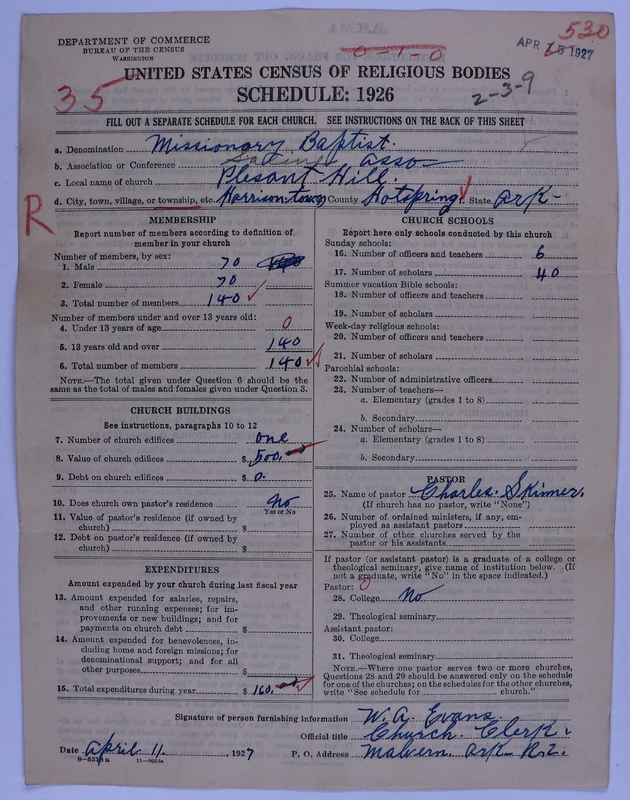 530
DEPARTMENT OF COMMERCE
BUREAU OF THE CENSUS
WASHINGTON
0-1-0
APR 15 1927
UNITED STATES CENSUS OF RELIGIOUS BODIES
35
SCHEDULE: 1926
2-3-9
FILL OUT A SEPARATE SCHEDULE FOR EACH CHURCH. SEE INSTRUCTIONS ON THE BACK OF THIS SHEET
a. Denomination Missionary Baptist.
b. Association or Conference Saline Asso
c. Local name of church Plesant Hill.
d. City, town, village, or township, etc. Harrison town County Hotspring. State Ark
R
MEMBERSHIP
Report number of members according to definition of
member in your church
Number of members, by sex:
1. Male 70
2. Female 70
3. Total number of members 140
Number of members under and over 13 years old:
4. Under 13 years of age 0
5. 13 years old and over 140
6. Total number of members 140
NOTE.—The total given under Question 6 should be the
same as the total of males and females given under Question 3.
CHURCH BUILDINGS
See instructions, paragraphs 10 to 12
7. Number of church edifices one
8. Value of church edifices $ 500.
9. Debt on church edifices $ 0.
10. Does church own pastor's residence No
Yes or No
11. Value of pastor's residence (if owned by
church) $
12. Debt on pastor's residence (if owned by
church) $
EXPENDITURES
Amount expended by your church during last fiscal year
13. Amount expended for salaries, repairs,
and other running expenses; for im-
provements or new buildings; and for
payments on church debt $
14. Amount expended for benevolences, in-
cluding home and foreign missions; for
denominational support; and for all
other purposes $
15. Total expenditures during year $ 160.
CHURCH SCHOOLS
Report here only schools conducted by this church
Sunday schools:
16. Number of officers and teachers 6
17. Number of scholars 40
Summer vacation Bible schools:
18. Number of officers and teachers
19. Number of scholars
Week-day religious schools:
20. Number of officers and teachers
21. Number of scholars
Parochial schools:
22. Number of administrative officers
23. Number of teachers—
a. Elementary (grades 1 to 8)
b. Secondary
24. Number of scholars—
a. Elementary (grades 1 to 8)
b. Secondary
PASTOR
25. Name of pastor Charles. Skinner.
(If church has no pastor, write "None")
26. Number of ordained ministers, if any, em-
ployed as assistant pastors
27. Number of other churches served by the
pastor or his assistants
If pastor (or assistant pastor) is a graduate of a college or
theological seminary, give name of institution below. (If
not a graduate, write "No" in the space indicated.)
Pastor: 0
28. College No
29. Theological seminary
Assistant pastor:
30. College
31. Theological seminary
NOTE.—Where one pastor serves two or more churches,
Questions 28 and 29 should be answered only on the schedule
for one of the churches; on the schedules for the other churches,
write "See schedule for church."
Signature of person furnishing information W. A. Evans.
Official title Church. Clerk.
Date April 11. 1927 P. O. Address Malvern. Ark R.2.